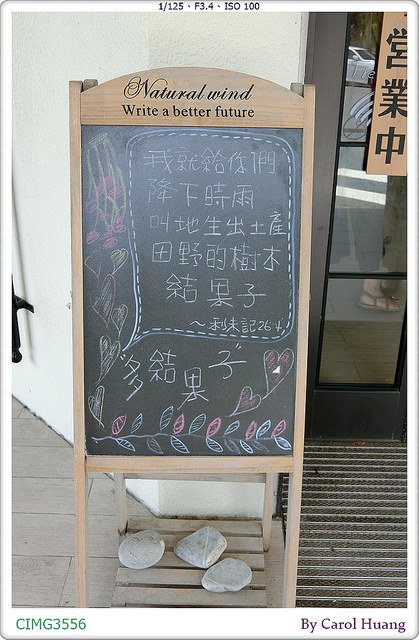 1/125 · F3.4 · ISO 100
Natural wind
Write a better future
營業中
我就給你們
降下時雨
叫地生出土產
田野的樹木
結果子
～利未記26:4
"多結果子"
CIMG3556
By Carol Huang